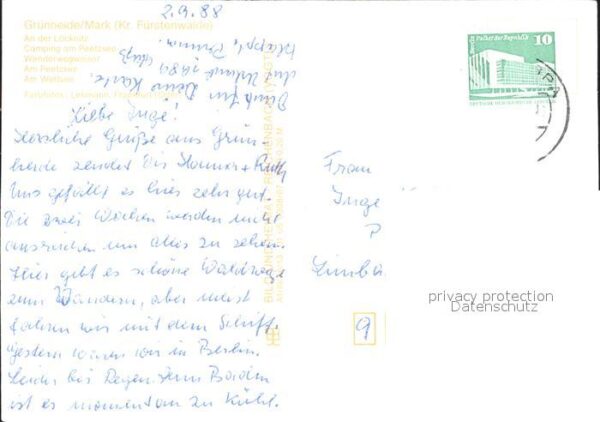 2.9.88
Grünheide/Mark (Kr. Fürstenwalde)
An der Löcknitz
Camping am Peetzsee
Wanderwegweiser
Am Peetzsee
Am Werlsee
Dank für Deine Karte.
Liebe Inge!
Herzliche Grüße aus Grün-
heide sendet Dir Hanna + Ruth
Uns gefällt es hier sehr gut.
Die zwei Wochen werden nicht
ausreichen um alles zu sehen.
Hier gibt es schöne Waldwege
zum Wandern, aber meist
fahren wir mit dem Schiff.
Gestern waren wir in Berlin.
Leider bei Regen. Zum Baden
ist es momentan zu kühl.
BILD UND HEIMAT REICHENBACH (VOGTL)
Berlin, Palast der Republik
10
Frau
Inge
P
Limba
9
privacy protection
Datenschutz